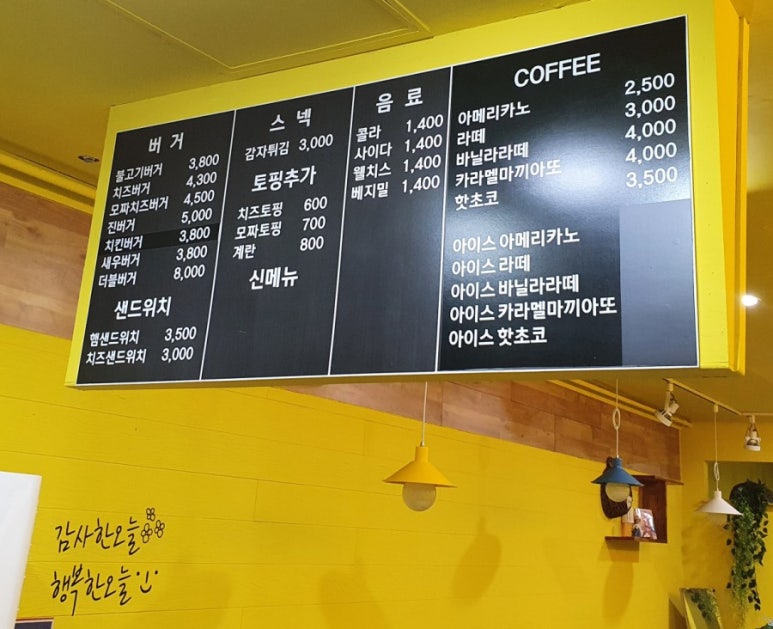 버 거
불고기버거 3,800
치즈버거 4,300
모짜치즈버거 4,500
진버거 5,000
치킨버거 3,800
새우버거 3,800
더블버거 8,000
샌드위치
햄샌드위치 3,500
치즈샌드위치 3,000
스 넥
감자튀김 3,000
토핑추가
치즈토핑 600
모짜토핑 700
계란 800
신메뉴
음 료
콜라 1,400
사이다 1,400
웰치스 1,400
베지밀 1,400
COFFEE
아메리카노 2,500
라떼 3,000
바닐라라떼 4,000
카라멜마끼아또 4,000
핫초코 3,500
아이스 아메리카노
아이스 라떼
아이스 바닐라라떼
아이스 카라멜마끼아또
아이스 핫초코
감사한오늘
행복한오늘